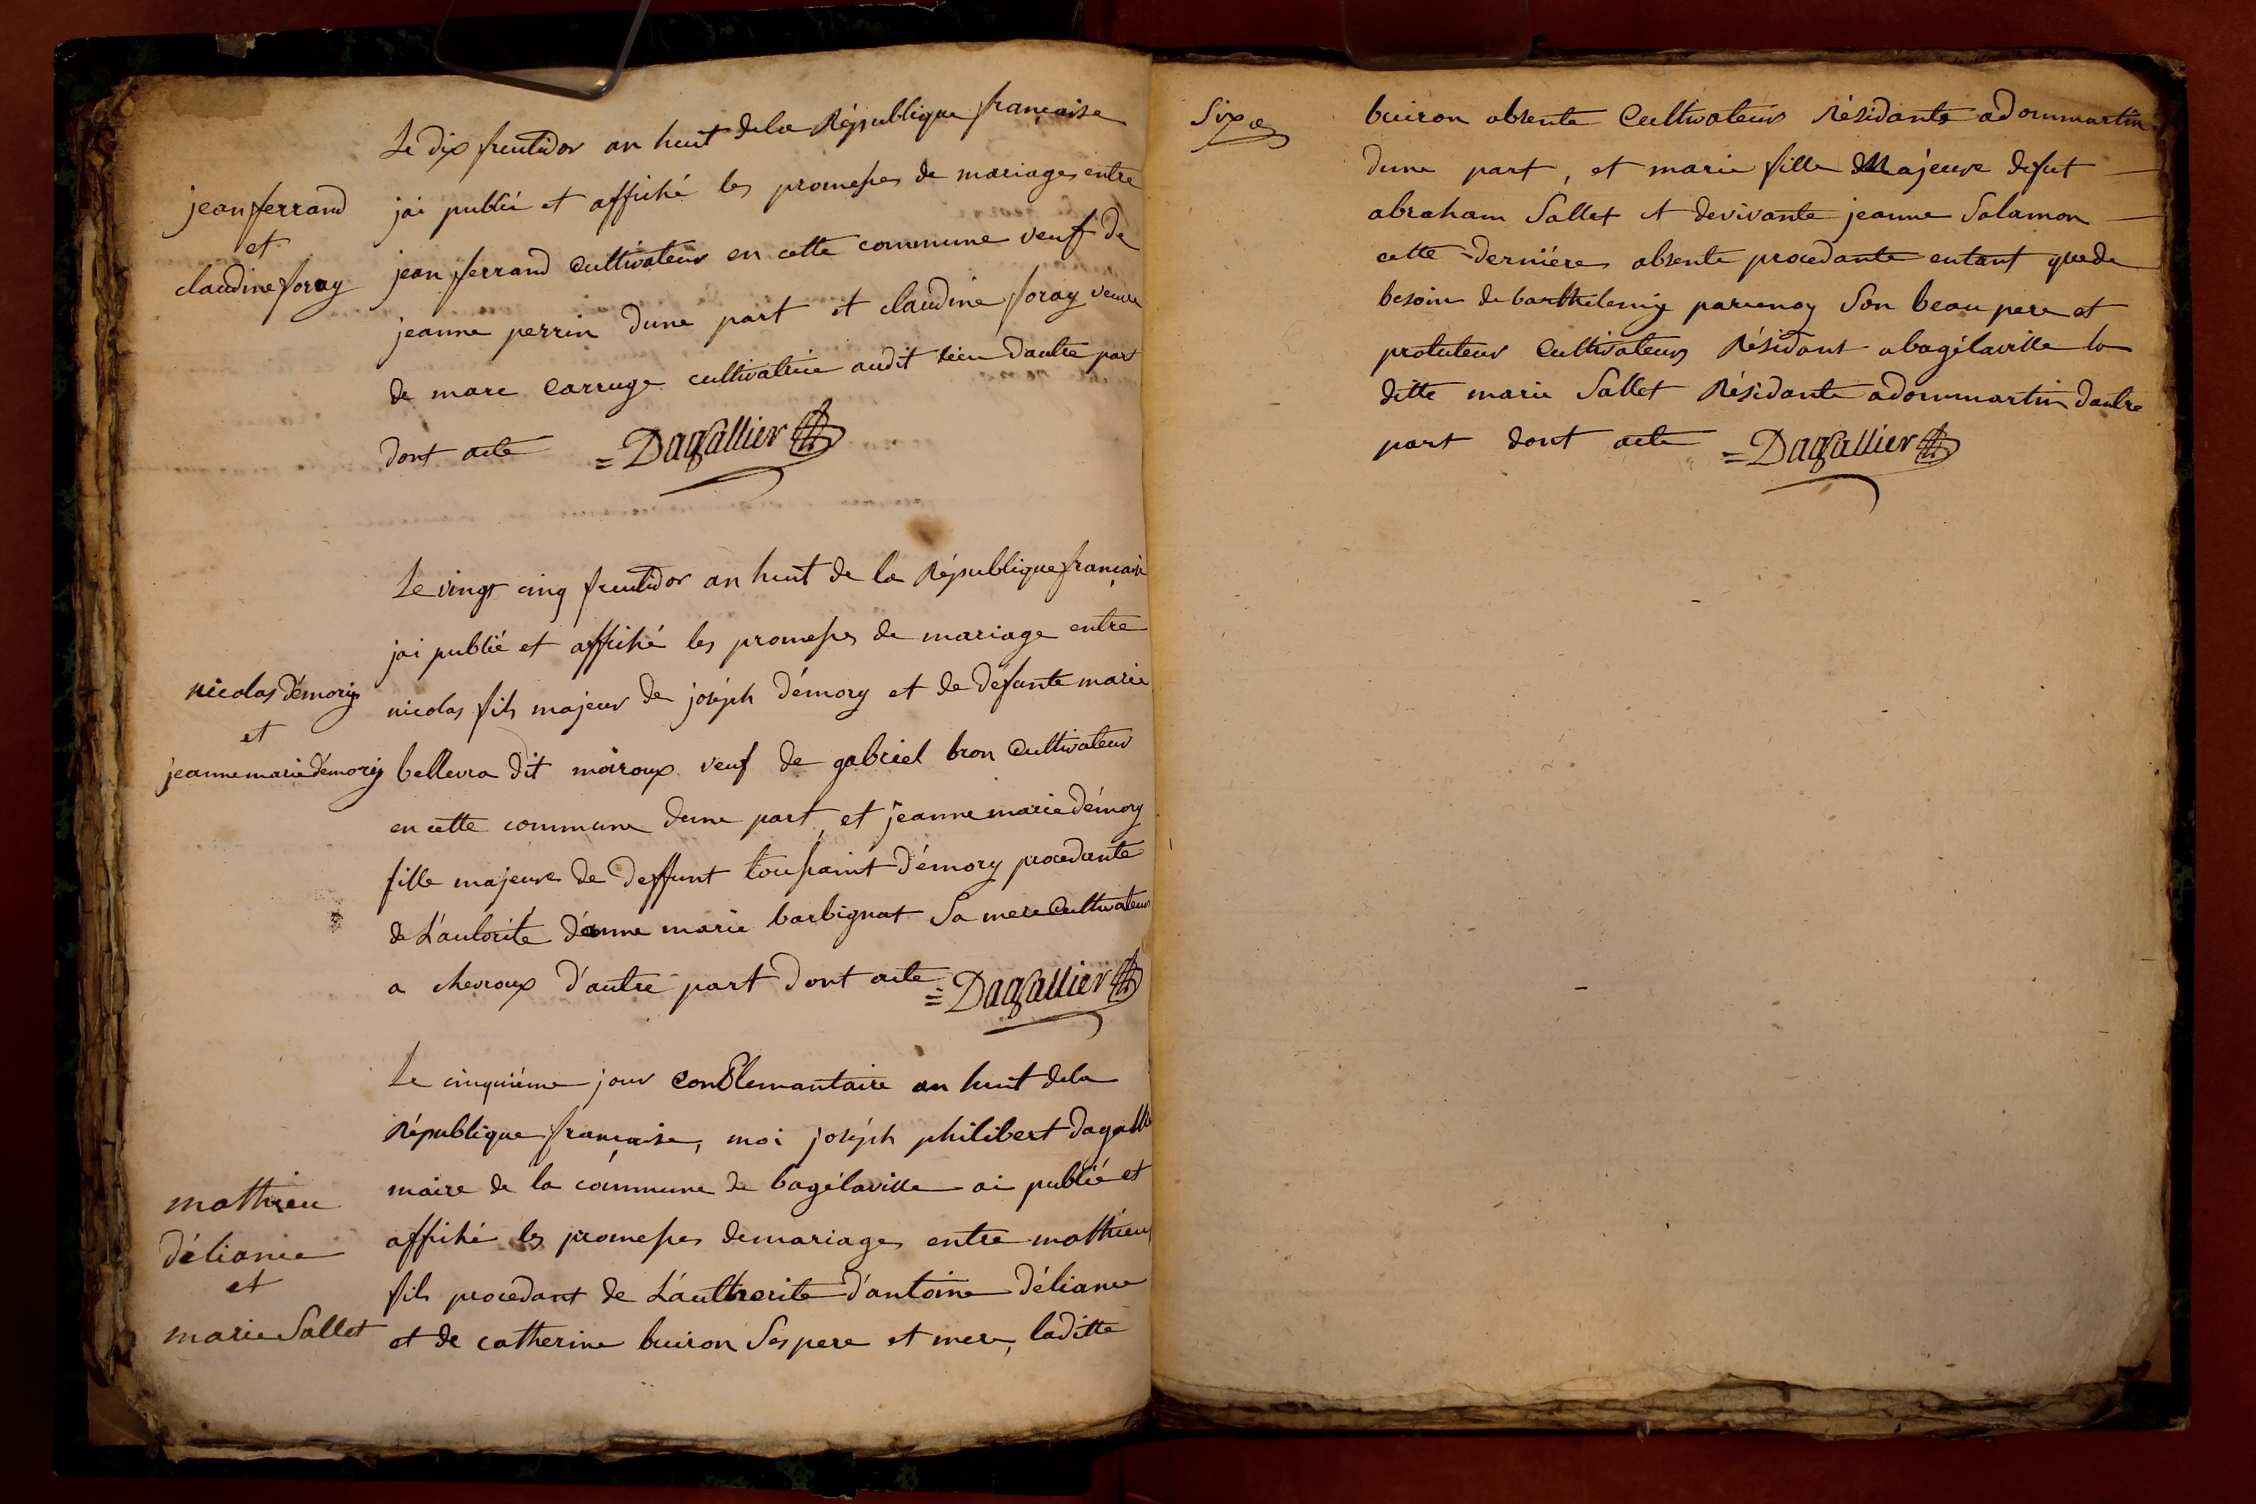 jean ferrand
et
claudine foray
Le dix fructidor an huit dela République française
jai publié et affiché les promesses de mariages entre
jean ferrand cultivateur en cette commune veuf de
jeanne perrin dune part et claudine foray veuve
de marc Carruge cultivatrice audit lieu dautre part
dont acte = Dagallier
nicolas démory
et
jeanne marie démory
Le vingt cinq fructidor an huit de la République française
jai publié et affiché les promesses de mariage entre
nicolas fils majeur de joséph démory et de défunte marie
bellevra dit moiroux veuf de gabriel bron Cultivateur
en cette commune dune part, et jeanne marie démory
fille majeure de deffunt toussaint démory procedante
de L'autorité d'anne marie barbignat Sa mere Cultivateur
a chevroux d'autre part dont acte = Dagallier
mathieu
déliance
et
marie Sallet
Le cinquiéme jour conplemantaire an huit dela
République française, moi joséph philibert dagallier
maire de la commune de bagélaville ai publié et
affiché les promesses demariages entre mathieu
fils procedant de L'authorite d'antoine déliance
et de catherine buiron Ses pere et mere, laditte
Six
buiron absente Cultivateurs Résidants adommartin
dune part, et marie fille Majeure defut
abraham Sallet et devivante jeanne Salamon
cette derniére absente procedante entant quede
besoin de barthelemy parienoy Son beau pere et
protuteur Cultivateur Résidant abagélaville la
ditte marie Sallet Résidante adommartin dautre
part dont acte = Dagallier